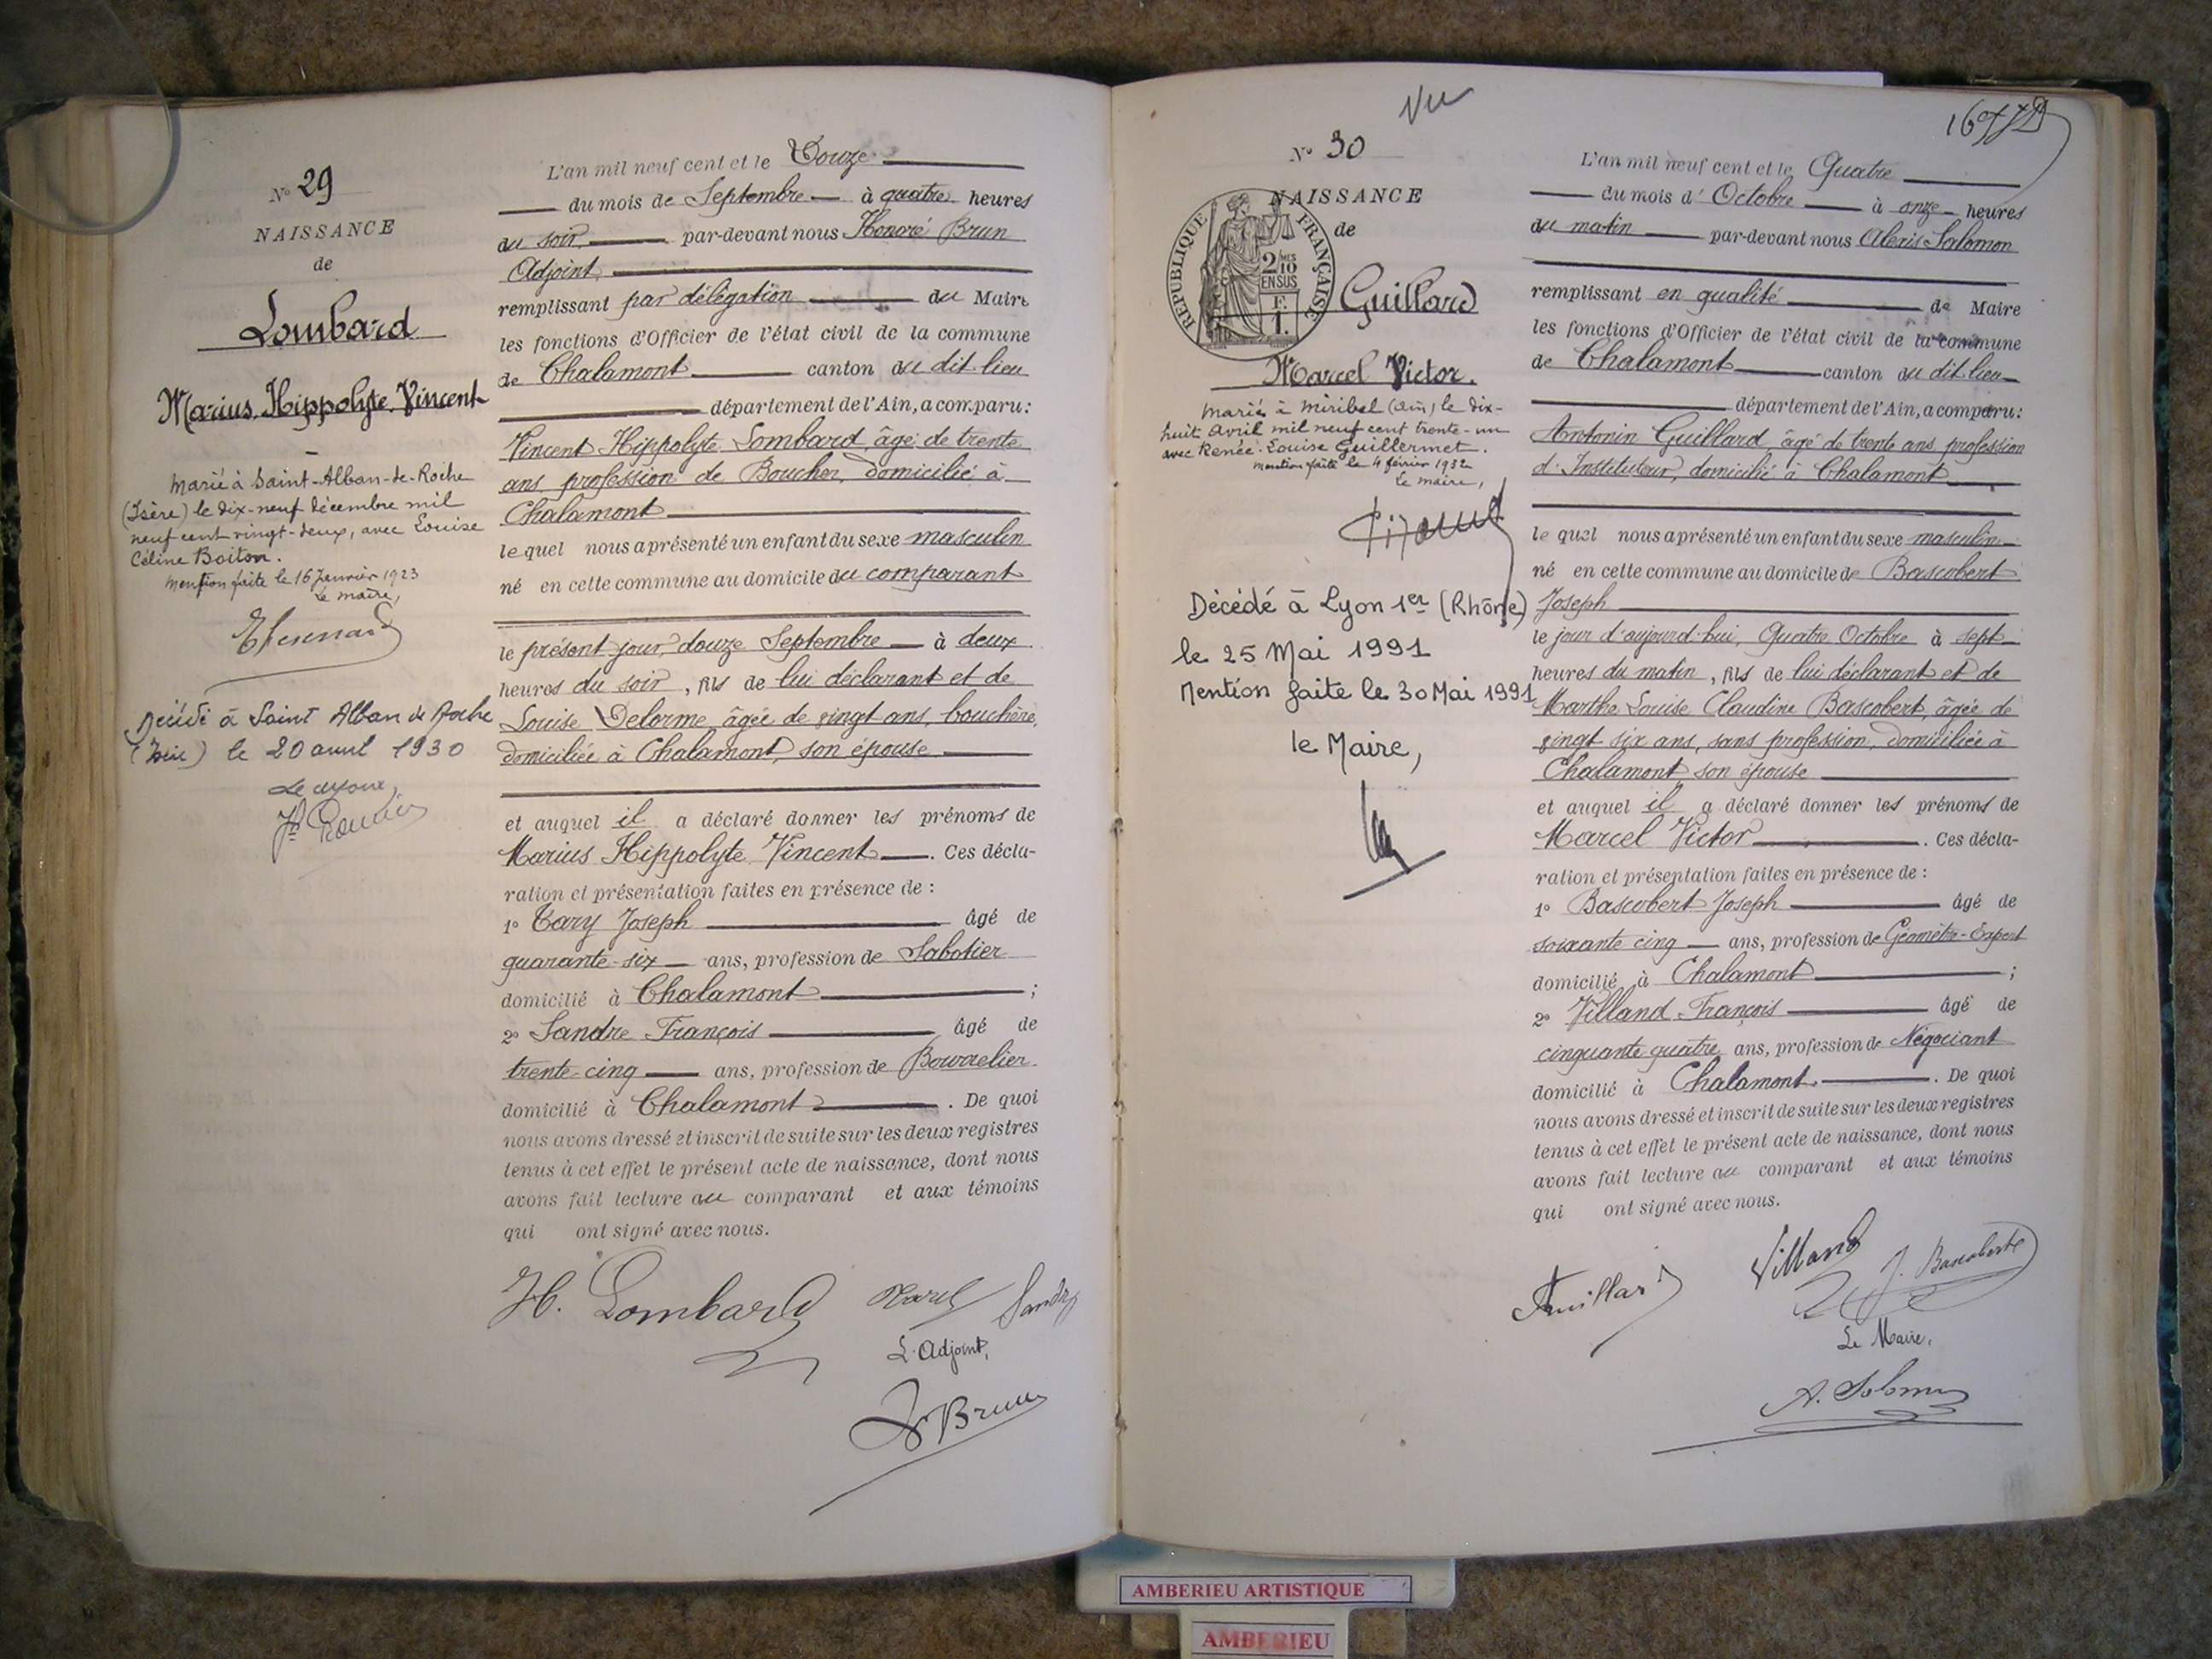 N° 29
NAISSANCE
de
Lombard
Marius, Hippolyte, Vincent
Marié à Saint-Alban-de-Roche
(Isère) le dix-neuf décembre mil
neuf cent vingt-deux, avec Louise
Céline Boiton.
Mention faite le 16 Janvier 1923
Le maire,
Décédé à Saint Alban de Roche
(Isère) le 20 avril 1930
L'an mil neuf cent et le Douze
du mois de Septembre à quatre heures
du soir par-devant nous Honoré Brun
Adjoint
remplissant par délégation du Maire
les fonctions d'Officier de l'état civil de la commune
de Chalamont canton du dit lieu
département de l'Ain, a comparu:
Vincent Hippolyte Lombard, âgé de trente
ans, profession de Boucher, domicilié à
Chalamont
le quel nous a présenté un enfant du sexe masculin
né en cette commune au domicile du comparant
le présent jour, douze Septembre à deux
heures du soir, fils de lui déclarant et de
Louise Delorme, âgée de vingt ans, bouchère,
domiciliée à Chalamont, son épouse
et auquel il a déclaré donner les prénoms de
Marius Hippolyte Vincent. Ces décla-
ration et présentation faites en présence de :
1° Tary Joseph âgé de
quarante-six ans, profession de Sabotier
domicilié à Chalamont ;
2° Sandre François âgé de
trente-cinq ans, profession de Bourrelier
domicilié à Chalamont. De quoi
nous avons dressé et inscrit de suite sur les deux registres
tenus à cet effet le présent acte de naissance, dont nous
avons fait lecture au comparant et aux témoins
qui ont signé avec nous.
H. Lombard Sandre
L'Adjoint,
H Brun
Vu
N° 30
NAISSANCE
de
REPUBLIQUE FRANÇAISE
2/10 MES
EN SUS
F.
1.
Guillard
Marcel Victor.
Marié à Miribel (Ain) le dix-
huit Avril mil neuf cent trente-un
avec Renée-Louise Guillermet.
Mention faite le 4 février 1932
Le maire,
Décédé à Lyon 1er (Rhône)
le 25 Mai 1991
Mention faite le 30 Mai 1991
le Maire,
L'an mil neuf cent et le Quatre
du mois d'Octobre à onze heures
du matin par-devant nous Alexis Salomon
remplissant en qualité de Maire
les fonctions d'Officier de l'état civil de la commune
de Chalamont canton du dit lieu
département de l'Ain, a comparu:
Antonin Guillard, âgé de trente ans, profession
d'Instituteur, domicilié à Chalamont
le quel nous a présenté un enfant du sexe masculin
né en cette commune au domicile de Bascobert
Joseph
le jour d'aujourd'hui, Quatre Octobre à sept
heures du matin, fils de lui déclarant et de
Marthe Louise Claudine Bascobert, âgée de
vingt six ans, sans profession, domiciliée à
Chalamont, son épouse
et auquel il a déclaré donner les prénoms de
Marcel Victor. Ces décla-
ration et présentation faites en présence de :
1° Bascobert Joseph âgé de
soixante cinq ans, profession de Géomètre-Expert
domicilié à Chalamont ;
2° Villand François âgé de
cinquante quatre ans, profession de Négociant
domicilié à Chalamont. De quoi
nous avons dressé et inscrit de suite sur les deux registres
tenus à cet effet le présent acte de naissance, dont nous
avons fait lecture au comparant et aux témoins
qui ont signé avec nous.
Guillard Villand J. Bascobert
Le Maire,
A. Salomon
AMBERIEU ARTISTIQUE
AMBERIEU